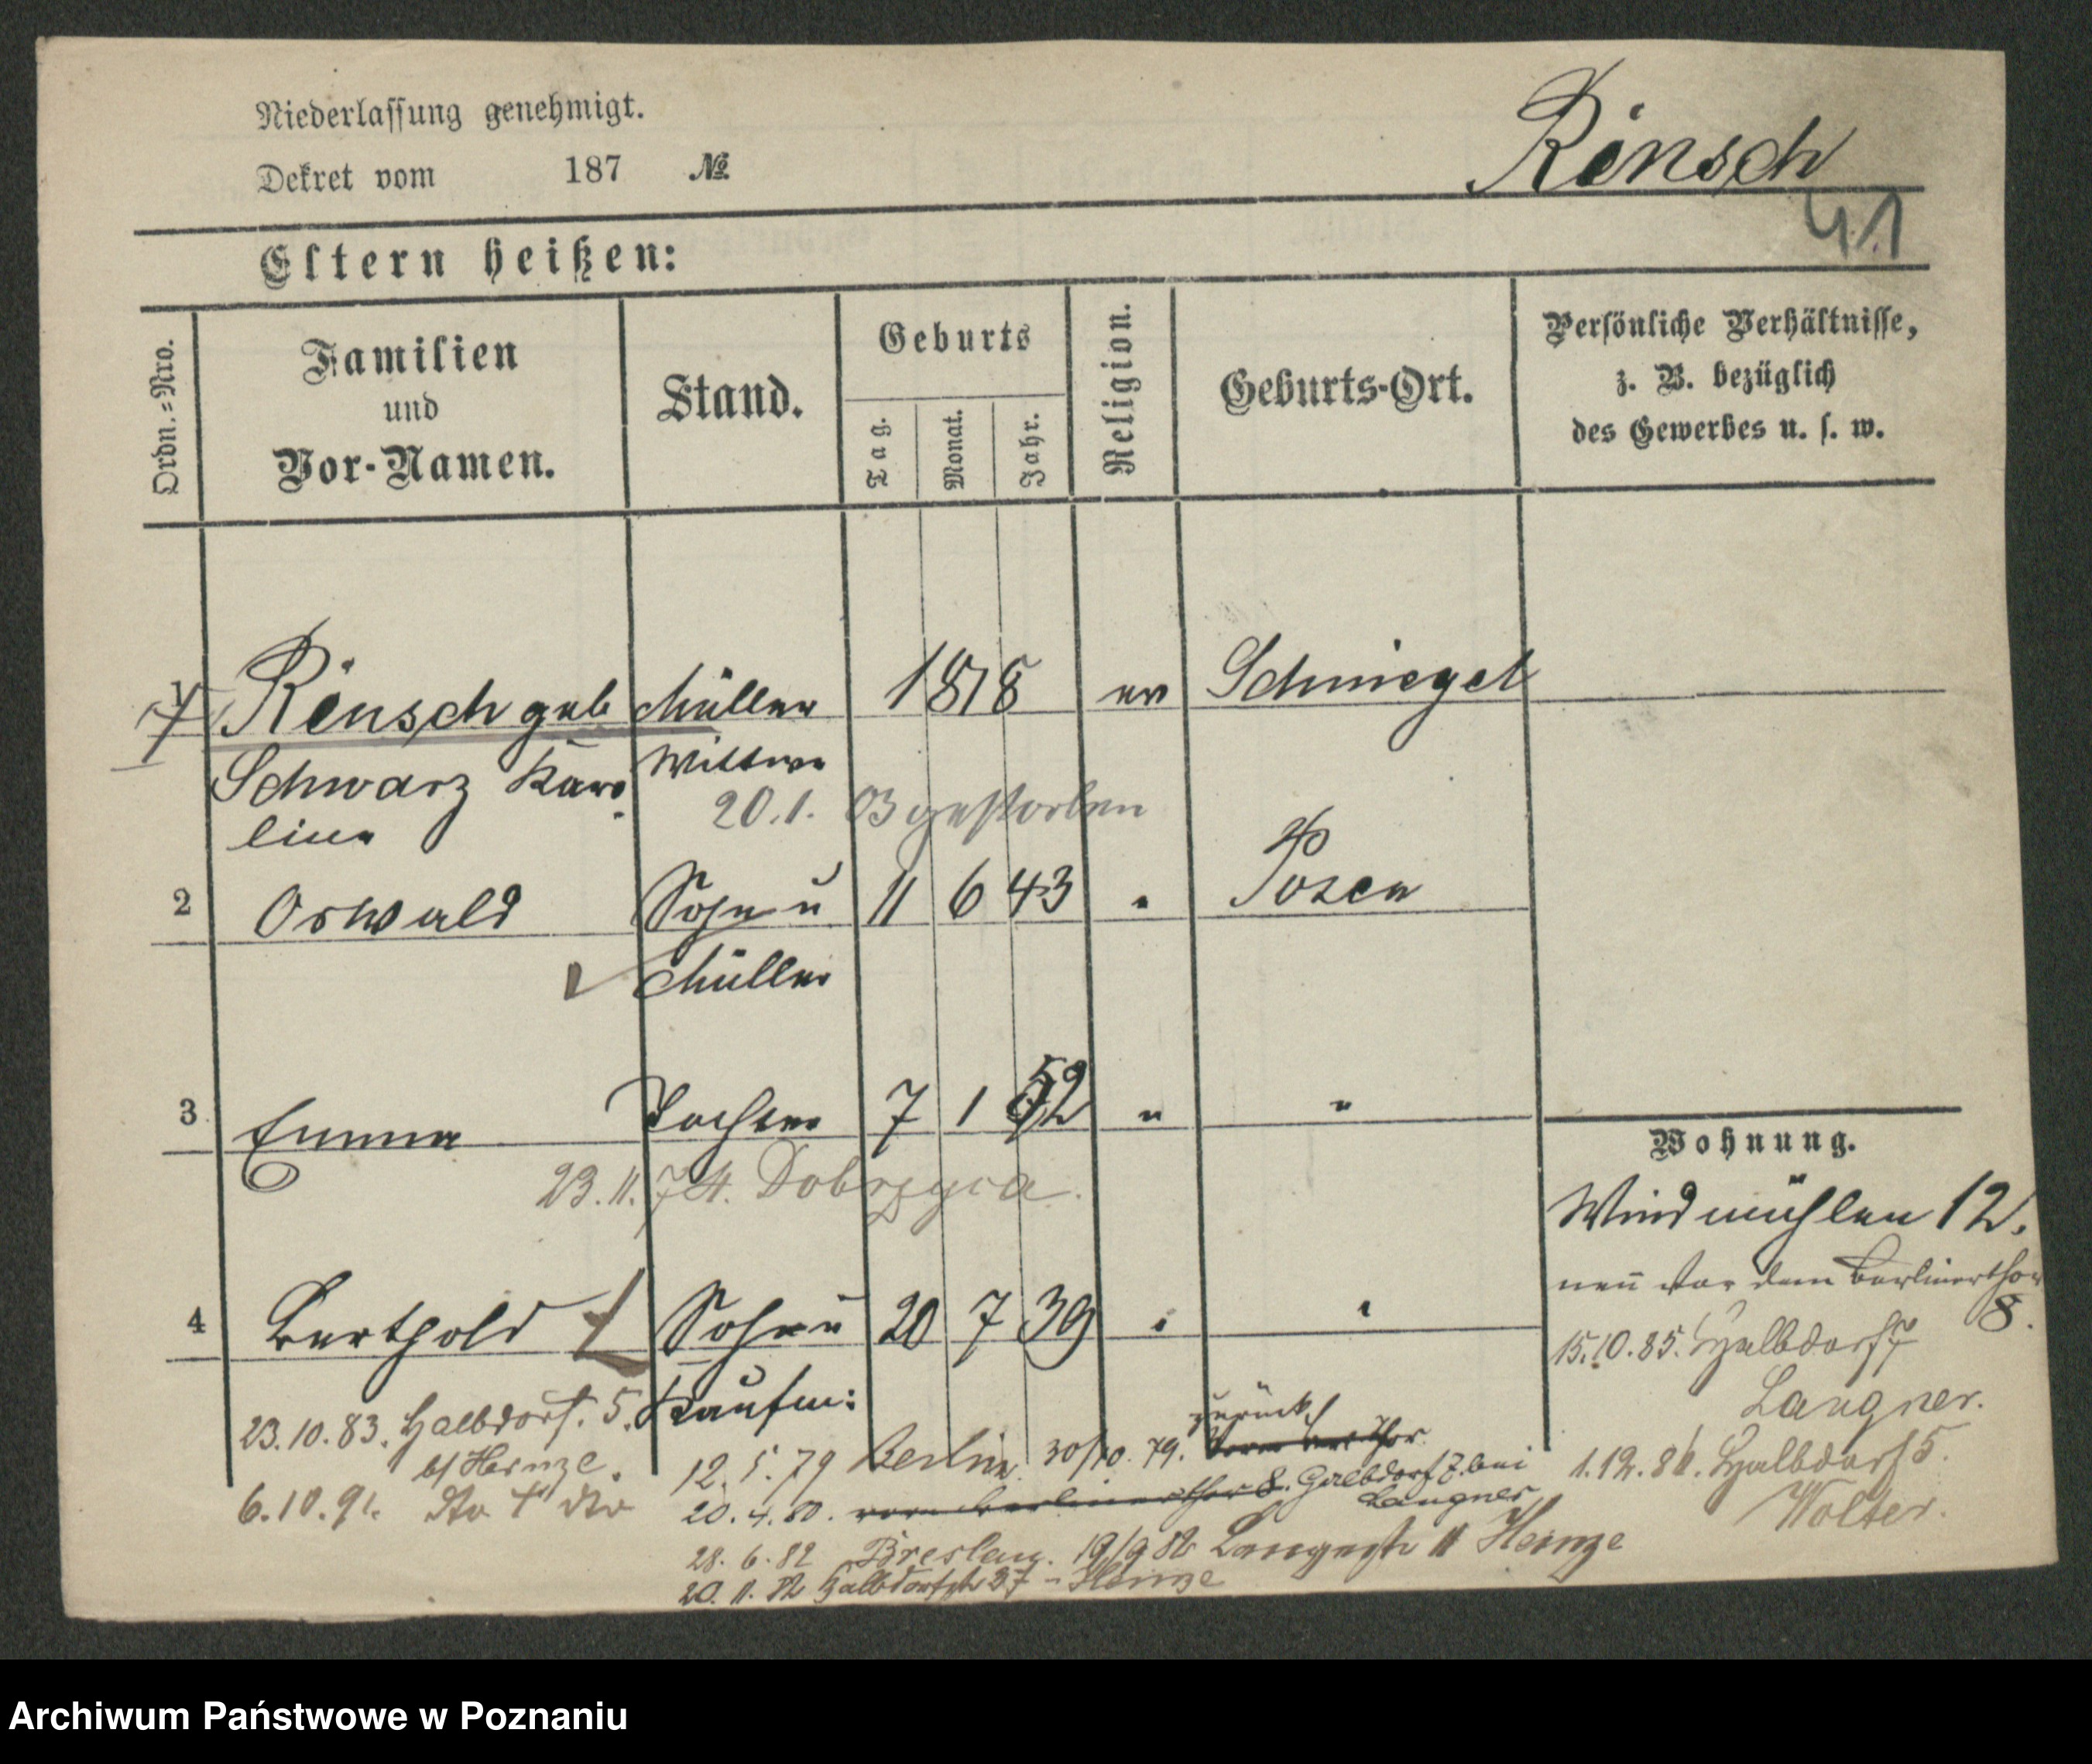 Niederlassung genehmigt.
Dekret vom 187 №
Rensch
41
Eltern heißen:
Ordn.-Nro.
Familien
und
Vor-Namen.
Stand.
Geburts
Tag.
Monat.
Jahr.
Religion.
Geburts-Ort.
Persönliche Verhältnisse,
z. B. bezüglich
des Gewerbes u. s. w.
1 Rensch geb Müller 1818 ev Schmiegel
Schwarz Karo- Wittwe
line 20.1. 03 gestorben
2 Oswald Sohn u 11 6 43 " Posen
Müller
3 Emma Tochter 7 1 52 " "
23.11.74. Dobrzyca.
4 Berthold Sohn u 20 7 39 " "
Kaufm:
23.10.83. Halbdorf. 5.
b/ Heinze.
6.10.91. dto dto
12.5.79 Berlin 30/10.79. zurück
20.4.80. vor Berlinerthor 8. Halbdorf 7. bei
Langner
28.6.82 Breslau. 19/9 82 Langestr 11 Heinze
20.11.82 Halbdorfstr 37 - Heinze
Wohnung.
Windmühlen 12.
neu vor dem Berlinerthor
8.
15.10.85. Halbdorfstr
Langner.
1.12.86. Halbdorf 5.
Wolter.
Archiwum Państwowe w Poznaniu